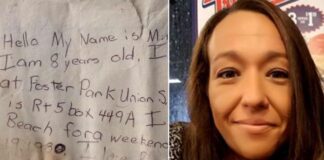 Hello My Name is M
I am 8 years old. I
at Foster Park Union S
is Rt 5 box 449A I
Beach for a weekend
19, 1980 I